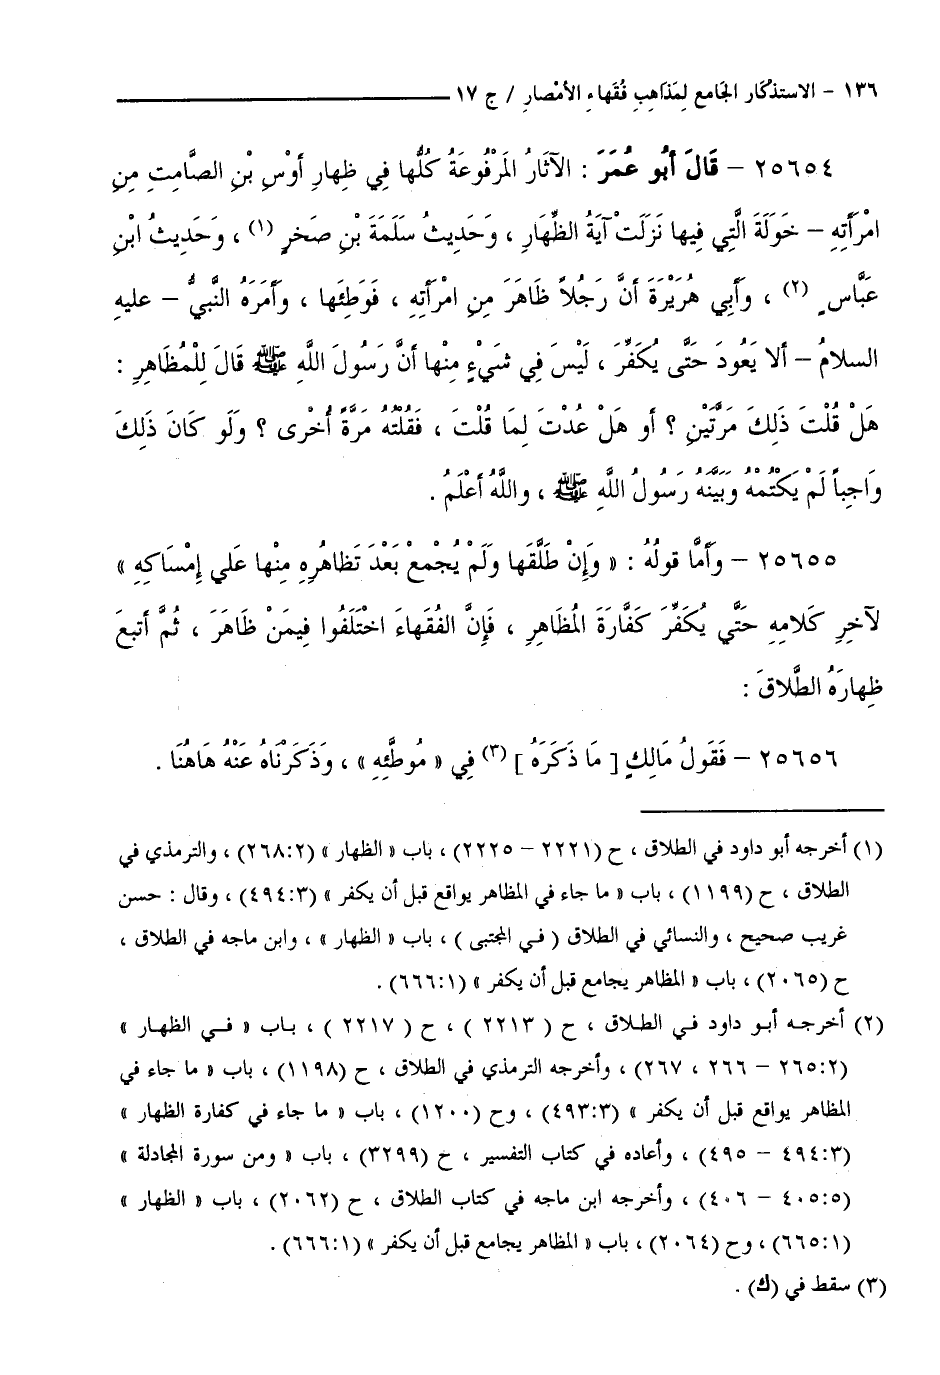 ١٣٦ - الاستذكار الجامع لمَذَاهِبِ فُقَهاءِ الأمْصارِ / ج ١٧
٢٥٦٥٤ - قَالَ أبُو عُمَرَ : الآثَارُ المَرْفُوعَةُ كُلُّها فِي ظِهارِ أوْسِ بْنِ الصَّامِتِ مِنِ
امْرأتِهِ - خَوَلَةَ الَّتِي فِيها نَزَلَتْ آيَةُ الظِّهَارِ ، وَحَدِيثُ سَلَمَةَ بْنِ صَخرٍ (١) ، وَحَدِيثُ ابْنِ
عَبَّاسٍ (٢) ، وَأبِي هُرَيْرَةَ أنَّ رَجُلاً ظاهَرَ مِنِ امْرأتِهِ ، فَوَطِئَها ، وَأمَرَهُ النَّبِيُّ - عليهِ
السلامُ - ألا يَعُودَ حَتَّى يُكَفِّرَ ، لَيْسَ فِي شَيْءٍ مِنْها أنَّ رَسُولَ اللَّهِ ﷺ قَالَ لِلْمُظَاهِرِ :
هَلْ قُلْتَ ذَلِكَ مَرَّتَيْنِ ؟ أو هَلْ عُدْتَ لِمَا قُلْتَ ، فَقُلْتُهُ مَرَّةً أُخْرى ؟ وَلَو كَانَ ذَلِكَ
وَاجِباً لَمْ يَكْتُمْهُ وَبَيَّنَهُ رَسُولُ اللَّهِ ﷺ ، واللَّهُ أعْلَمُ .
٢٥٦٥٥ - وَأَمَّا قولُهُ : « وَإِنْ طَلَّقَها وَلَمْ يُجْمعْ بَعْدَ تَظاهُرِهِ مِنْها عَلي إِمْسَاكِهِ »
لآخِرِ كَلامِهِ حَتَّي يُكَفِّرَ كَفَّارَةَ المُظَاهِرِ ، فَإِنَّ الفُقَهاءَ اخْتَلَفُوا فِيمَنْ ظَاهَرَ ، ثُمَّ أتبعَ
ظِهارَهُ الطَّلاقَ :
٢٥٦٥٦ - فَقَولُ مَالِكٍ [ مَا ذَكَرَهُ ] (٣) فِي « مُوطَّئِهِ » ، وَذَكَرْنَاهُ عَنْهُ هَاهُنَا .
(١) أخرجه أبو داود في الطلاق ، ح (٢٢٢١ - ٢٢٢٥) ، باب « الظهار » (٢٦٨:٢) ، والترمذي في
الطلاق ، ح (١١٩٩) ، باب « ما جاء في المظاهر يواقع قبل أن يكفر » (٤٩٤:٣) ، وقال : حسن
غريب صحيح ، والنسائي في الطلاق ( في المجتبى ) ، باب « الظهار » ، وابن ماجه في الطلاق ،
ح (٢٠٦٥) ، باب « المظاهر يجامع قبل أن يكفر » (٦٦٦:١) .
(٢) أخرجه أبو داود في الطلاق ، ح ( ٢٢١٣ ) ، ح ( ٢٢١٧ ) ، باب « في الظهار »
(٢٦٥:٢ - ٢٦٦ ، ٢٦٧) ، وأخرجه الترمذي في الطلاق ، ح (١١٩٨) ، باب « ما جاء في
المظاهر يواقع قبل أن يكفر » (٤٩٣:٣) ، وح (١٢٠٠) ، باب « ما جاء في كفارة الظهار »
(٤٩٤:٣ - ٤٩٥) ، وأعاده في كتاب التفسير ، خ (٣٢٩٩) ، باب « ومن سورة المجادلة »
(٤٠٥:٥ - ٤٠٦) ، وأخرجه ابن ماجه في كتاب الطلاق ، ح (٢٠٦٢) ، باب « الظهار »
(٦٦٥:١) ، وح (٢٠٦٤) ، باب « المظاهر يجامع قبل أن يكفر » (٦٦٦:١) .
(٣) سقط في (ك) .